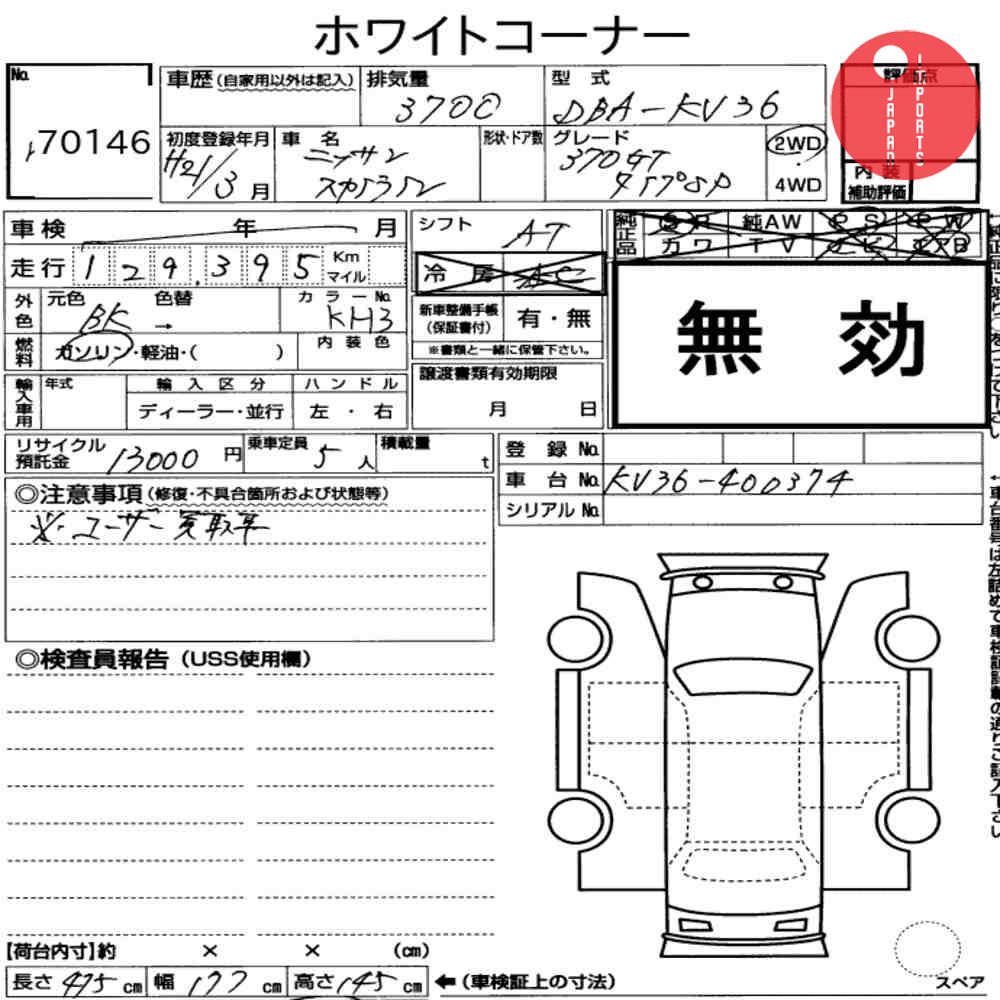 ホワイトコーナー
No.
70146
車歴 (自家用以外は記入)
排気量
3700
型式
DBA-KV36
評価点
JAPAN IMPORTS
初度登録年月
H21/3月
車名
ニッサン
スカイライン
形状・ドア数
グレード
370GT
タイプSP
2WD
4WD
内装
補助評価
車検 年 月
シフト AT
純正品
純AW
カワ TV
走行 129,395 Km マイル
冷房
外色
元色 BK
色替 →
カラーNo. KH3
新車整備手帳
(保証書付)
有・無
※書類と一緒に保管下さい。
無効
燃料
ガソリン・軽油・( )
内装色
輸入車用
年式
輸入区分
ディーラー・並行
ハンドル
左・右
譲渡書類有効期限
月 日
リサイクル
預託金 13000円
乗車定員 5人
積載量 t
登録No.
車台No. KV36-400374
シリアルNo.
◎注意事項 (修復・不具合箇所および状態等)
※・ユーザー買取車
◎検査員報告 (USS使用欄)
【荷台内寸】約 × × (cm)
長さ 475 cm 幅 177 高さ 145 cm ←(車検証上の寸法)
スペア